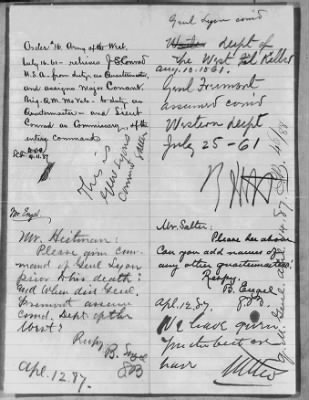 Order 16. Army of the West.
July 16. 61 - relieves J. S. Conrad
U.S.A. from duty as Quartermaster,
and assigns Major Conant
Brig. Q.M. Mo Vols - to duty as
Quartermaster - and directs
Conrad as Commissary, of the
entire command
This is
Genl Lyons
command
Salter
Mr. Engel
Mr. Heitman:
Please give com-
mand of Genl Lyon
prior to his death?
and when did Genl.
Fremont assume
comd. Dept. of the
West?
Respy
B. Engel
Apl. 12. 87.
Genl Lyon comd
dept of
the West till Killed
aug. 10. 1861.
Genl Fremont
assumed comd
Western dept
July 25-61
Mr. Salter.
Please see above
Can you add names of
any other quartermasters.
Respy
B. Engel
Apl. 12. 87.
We have given
the best we
have